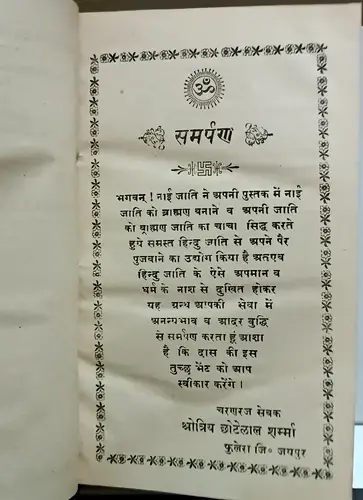 ॐ
समर्पण
भगवन् ! नाई जाति ने अपनी पुस्तक में नाई
जाति को ब्राह्मण बनाने व अपनी जाति
को ब्राह्मण जाति का चाचा सिद्ध करते
हुये समस्त हिन्दु जाति से अपने पैर
पुजवाने का उद्योग किया है अतएव
हिन्दु जाति के ऐसे अपमान व
धर्म के नाश से दुखित होकर
यह ग्रन्थ आपकी सेवा में
अनन्यभाव व आदर बुद्धि
से समर्पण करता हूं आशा
है कि दास की इस
तुच्छ भेंट को आप
स्वीकार करेंगे ।
चरणरज सेवक
श्रोत्रिय छोटेलाल शर्म्मा
फुलेरा जि॰ जयपुर